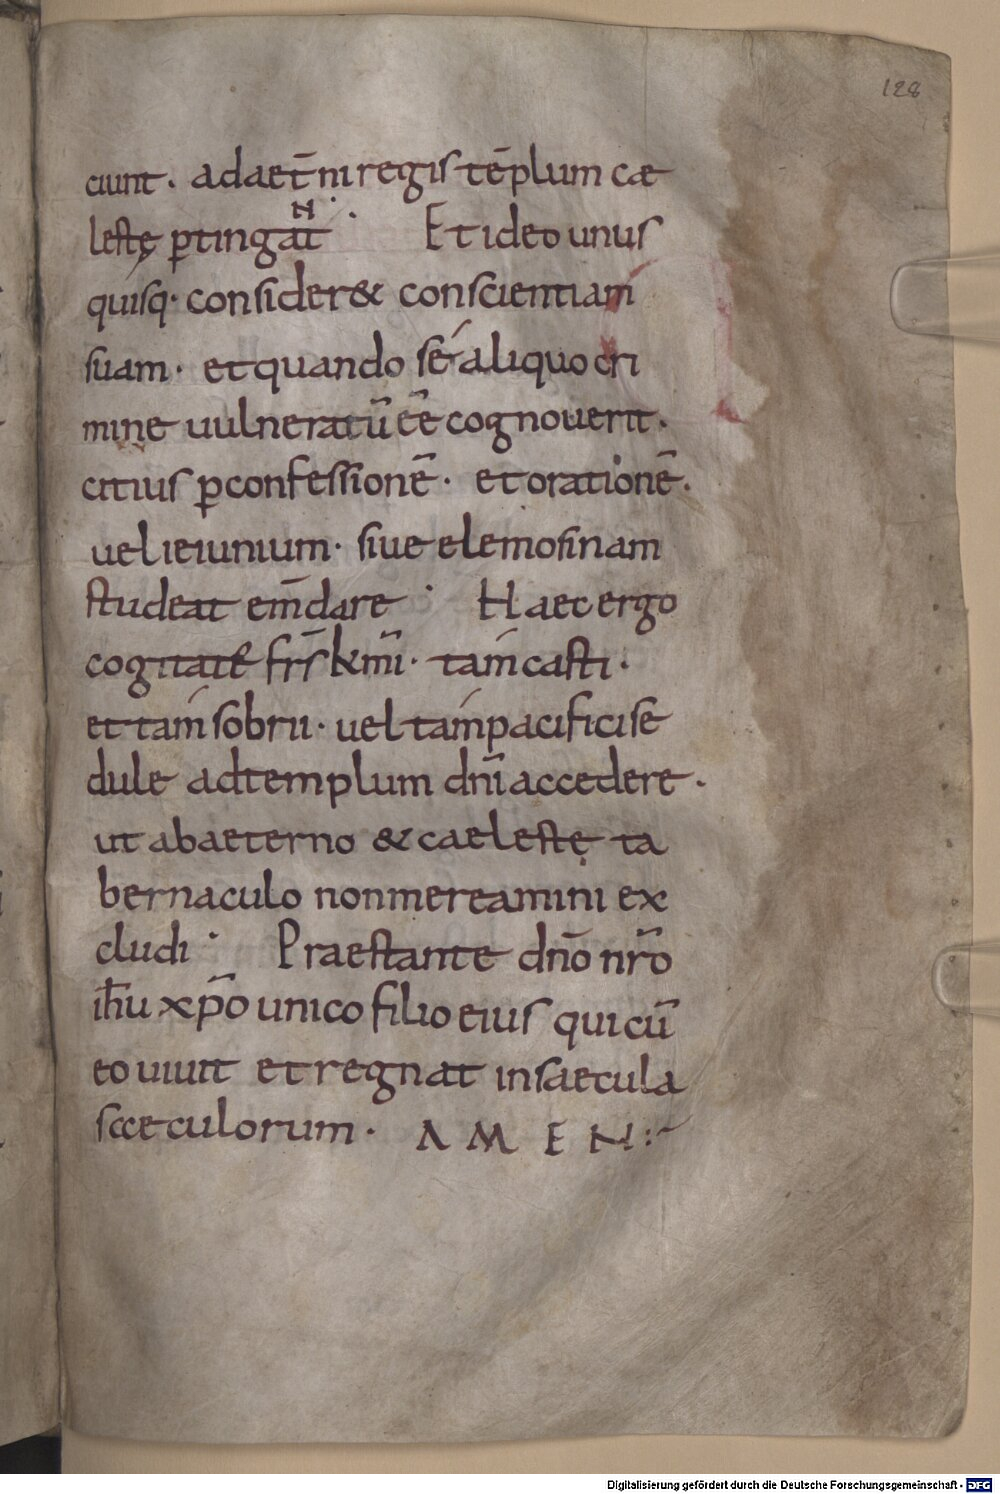 128
ciunt. adaet̄ni regis tēplum cæ
lestę ꝑtingaᴺt. Et ideo unus
quisq· consider& conscientiam
suam· et quando sé aliquo cri
mine uulneratū ēē cognouerit.
citius ꝑ confessionē· et orationē.
uel ieiunium· siue elemosinam
studeat em̄dare· Haec ergo
cogitate fr̄s km̄i· tám casti·
et tám sobrii· uel tám pacifici se
dule ad templum dn̄i accedere·
ut ab aeterno & caelestę ta
bernaculo non mereamini ex
cludi· Praestante dn̄o nr̄o
ih̄u xp̄o unico filio eius qui cū
eo uiuit et regnat in saecula
sæculorum· AMEN:~
Digitalisierung gefördert durch die Deutsche Forschungsgemeinschaft - DFG